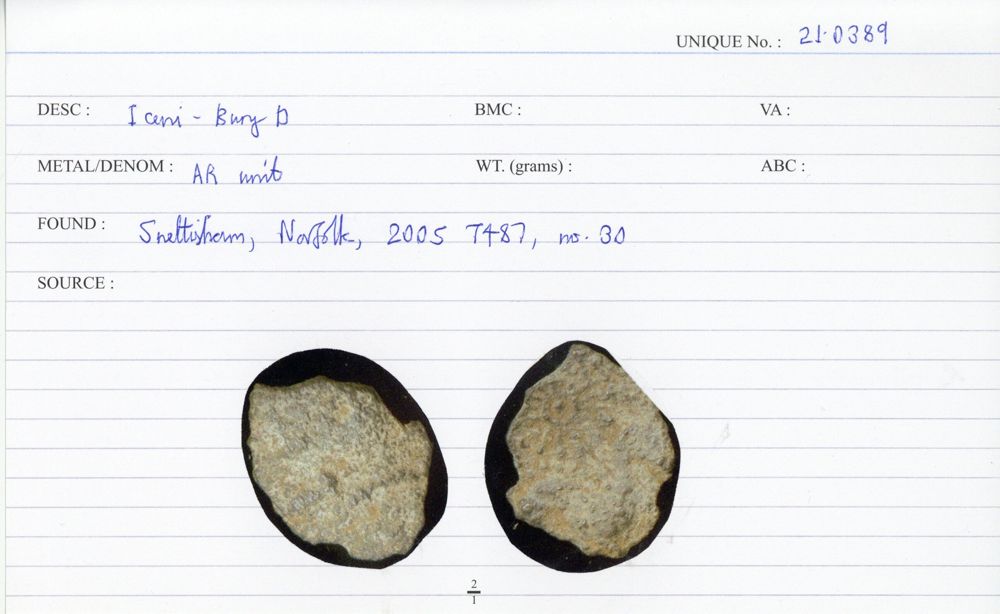 UNIQUE No. : 21.0389
DESC : Iceni - Bury D BMC : VA :
METAL/DENOM : AR unit WT. (grams) : ABC :
FOUND : Snettisham, Norfolk, 2005 T487, no. 30
SOURCE :
2
1